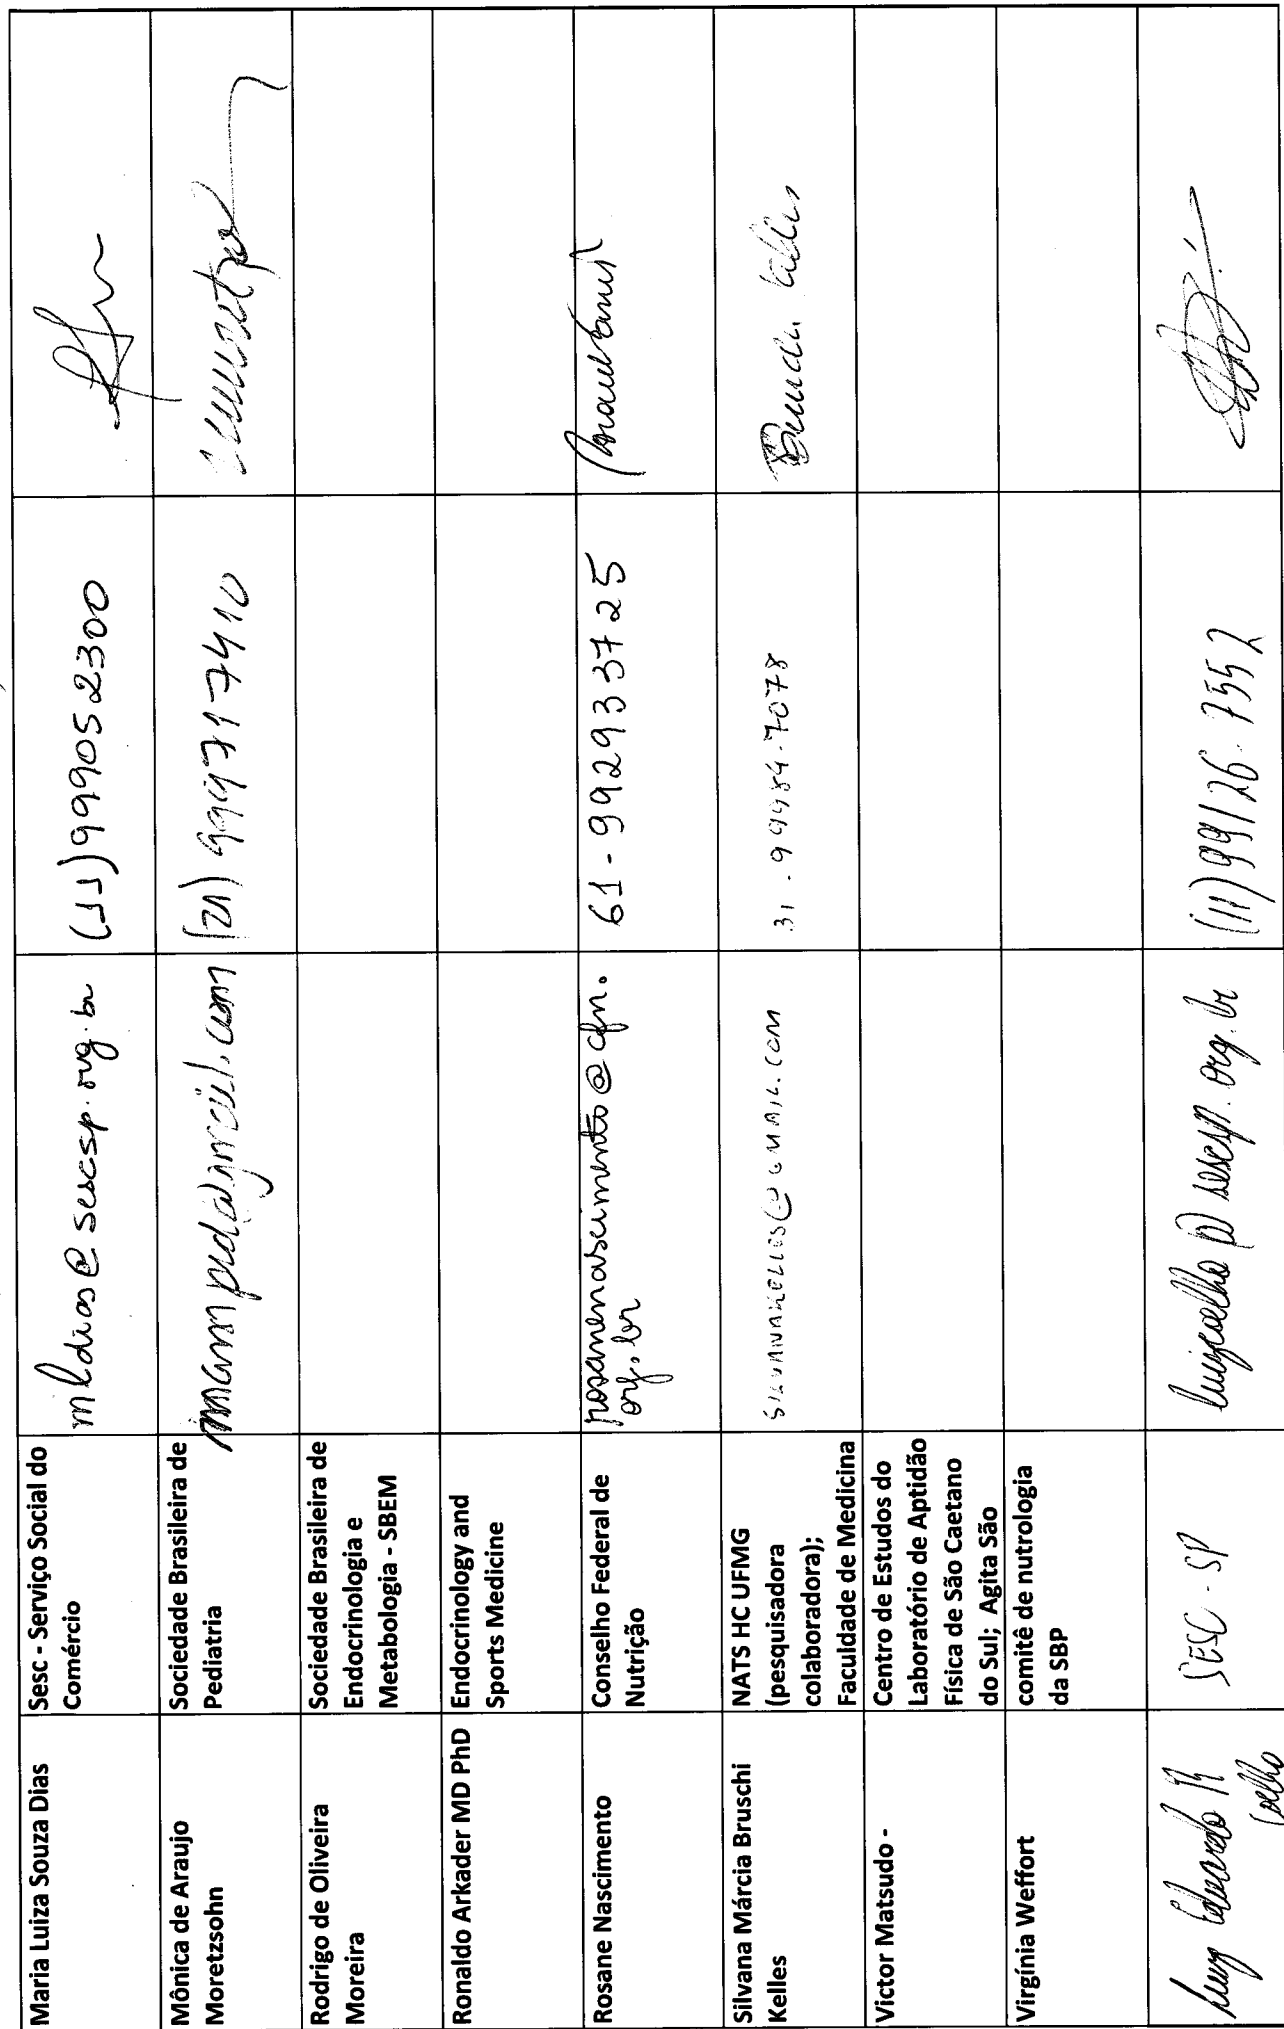 Maria Luiza Souza Dias
Sesc - Serviço Social do
Comércio
mldias@sescsp.org.br
(11) 999052300
Mônica de Araujo
Moretzsohn
Sociedade Brasileira de
Pediatria
mamped@gmail.com
(21) 999717410
Rodrigo de Oliveira
Moreira
Sociedade Brasileira de
Endocrinologia e
Metabologia - SBEM
Ronaldo Arkader MD PhD
Endocrinology and
Sports Medicine
Rosane Nascimento
Conselho Federal de
Nutrição
rosanenascimento@cfn.
org.br
61 - 992933725
Silvana Márcia Bruschi
Kelles
NATS HC UFMG
(pesquisadora
colaboradora);
Faculdade de Medicina
SILVANAKELLES@GMAIL.COM
31 - 99984-7078
Victor Matsudo -
Centro de Estudos do
Laboratório de Aptidão
Física de São Caetano
do Sul; Agita São
Virgínia Weffort
comitê de nutrologia
da SBP
Luiz Eduardo
Coelho
SESC - SP
luizcoelho@sescsp.org.br
(11) 99126-7552